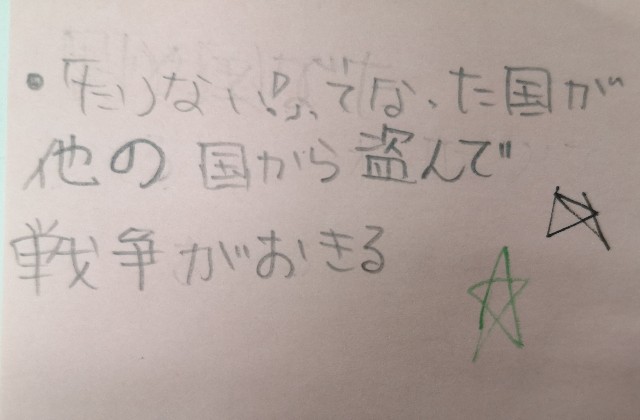 ・たりない なった国が
他の国から盗んで
戦争がおきる